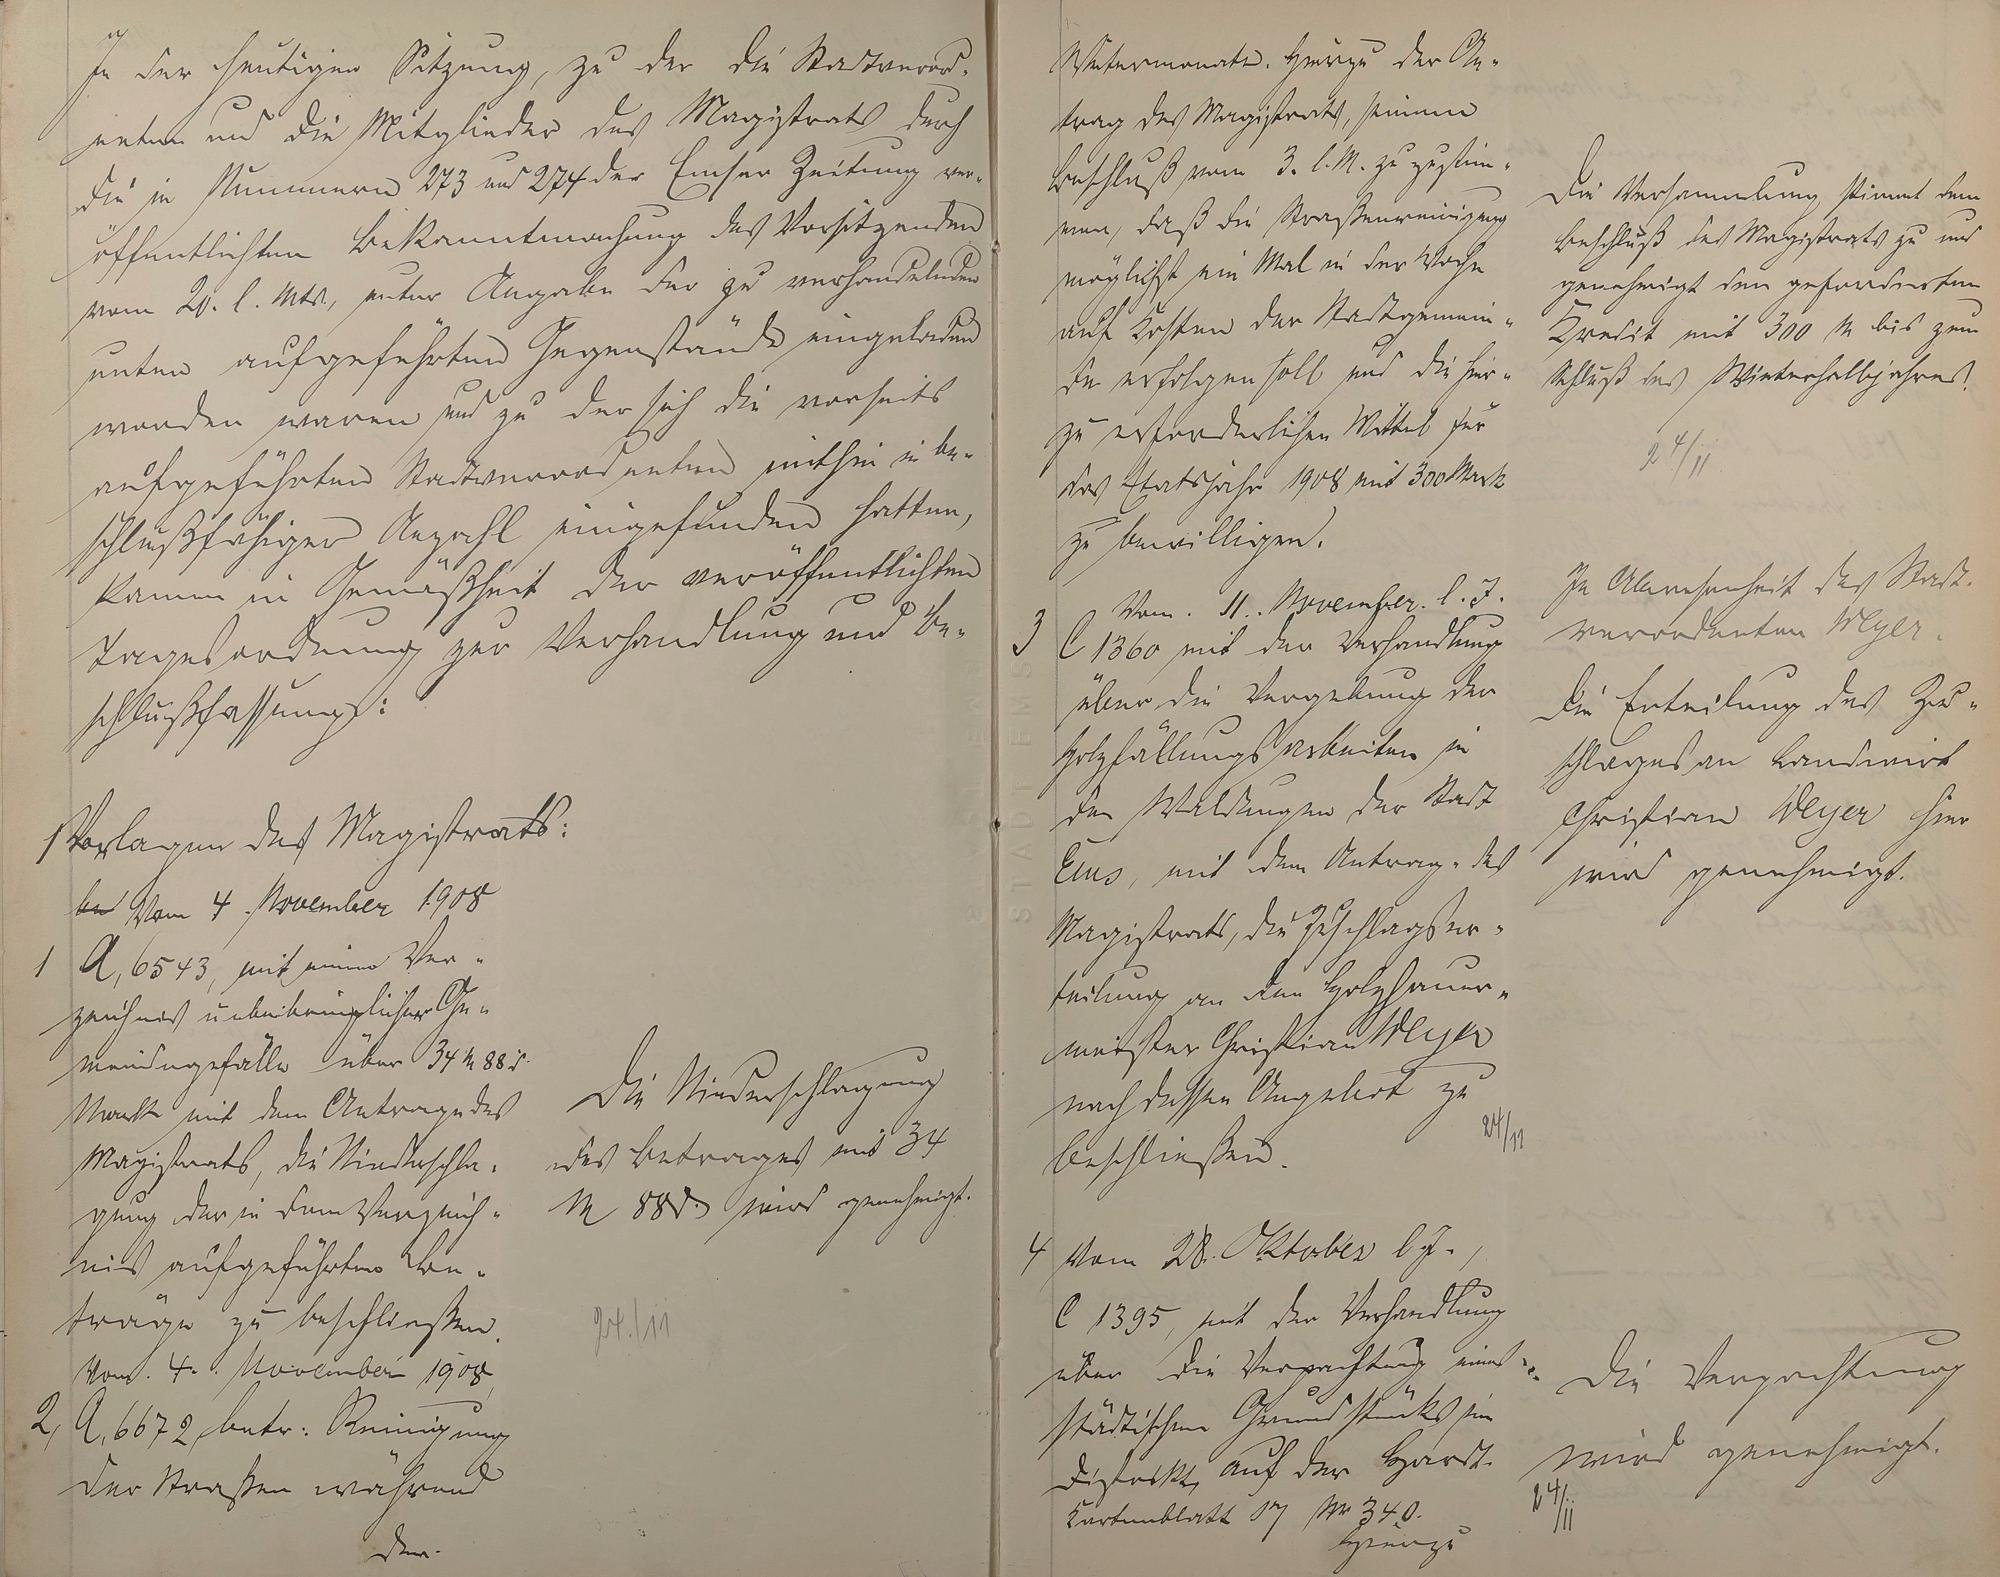 In der heutigen Sitzung, zu der die Stadtverord-
neten und die Mitglieder des Magistrats durch
die in Nummern 273 und 274 der Emser Zeitung ver-
öffentlichten Bekanntmachung des Vorsitzenden
vom 20. l. Mts., unter Angabe der zu verhandelnden
unten aufgeführten Gegenstände eingeladen
worden waren und zu der sich die vorseits
aufgeführten Stadtverordneten mithin in be-
schlußfähiger Anzahl eingefunden hatten,
kamen in Gemäßheit der veröffentlichten
Tagesordnung zur Verhandlung und Be-
schlußfassung:
1 Vorlagen des Magistrats:
Vom 4. November 1908
1 A, 6543, mit einem Ver-
zeichnis unbeibringlicher Ge-
meindegefälle über 34 M 88 d.
Mark mit dem Antrage des
Magistrats, die Niederschla-
gung der in dem Verzeich-
nis aufgeführten Be-
träge zu beschließen.
Die Niederschlagung
des Betrages mit 34
M 88 d. wird genehmigt.
24./11
Vom. 4. November 1908
2, A, 6672, betr. Reinigung
der Straßen während
der
Wintermonate. Hierzu der An-
trag des Magistrats, seinem
Beschluß vom 3. l. M. zu zustim-
men, daß die Straßenreinigung
möglichst ein Mal in der Woche
auf Kosten der Stadtgemein-
de erfolgen soll und die hier-
zu erforderlichen Mittel für
das Etatsjahr 1908 mit 300 Mark
zu bewilligen.
Die Versammlung stimmt dem
Beschluß des Magistrats zu und
genehmigt den geforderten
Kredit mit 300 M bis zum
Schluß des Winterhalbjahres.
24/11
Vom. 11. November. l. J.
3 C 1360 mit der Verhandlung
über die Vergebung der
Holzfällungsarbeiten in
den Waldungen der Stadt
Ems, mit dem Antrag des
Magistrats, die Zuschlagser-
teilung an den Holzhauer-
meister Christian Weyer
nach dessen Angebot zu
beschließen.
24/11
In Abwesenheit des Stadt-
verordneten Weyer.
Die Erteilung des Zu-
schlages an Landwirt
Christian Weyer hier
wird genehmigt.
4 Vom 28. Oktober l. J.,
C 1395, mit der Verhandlung
über die Verpachtung eines
städtischen Grundstücks im
Distrikt, auf der Hardt.
Kartenblatt 57 Nr 340.
Hierzu
Die Verpachtung
wird genehmigt.
24/11